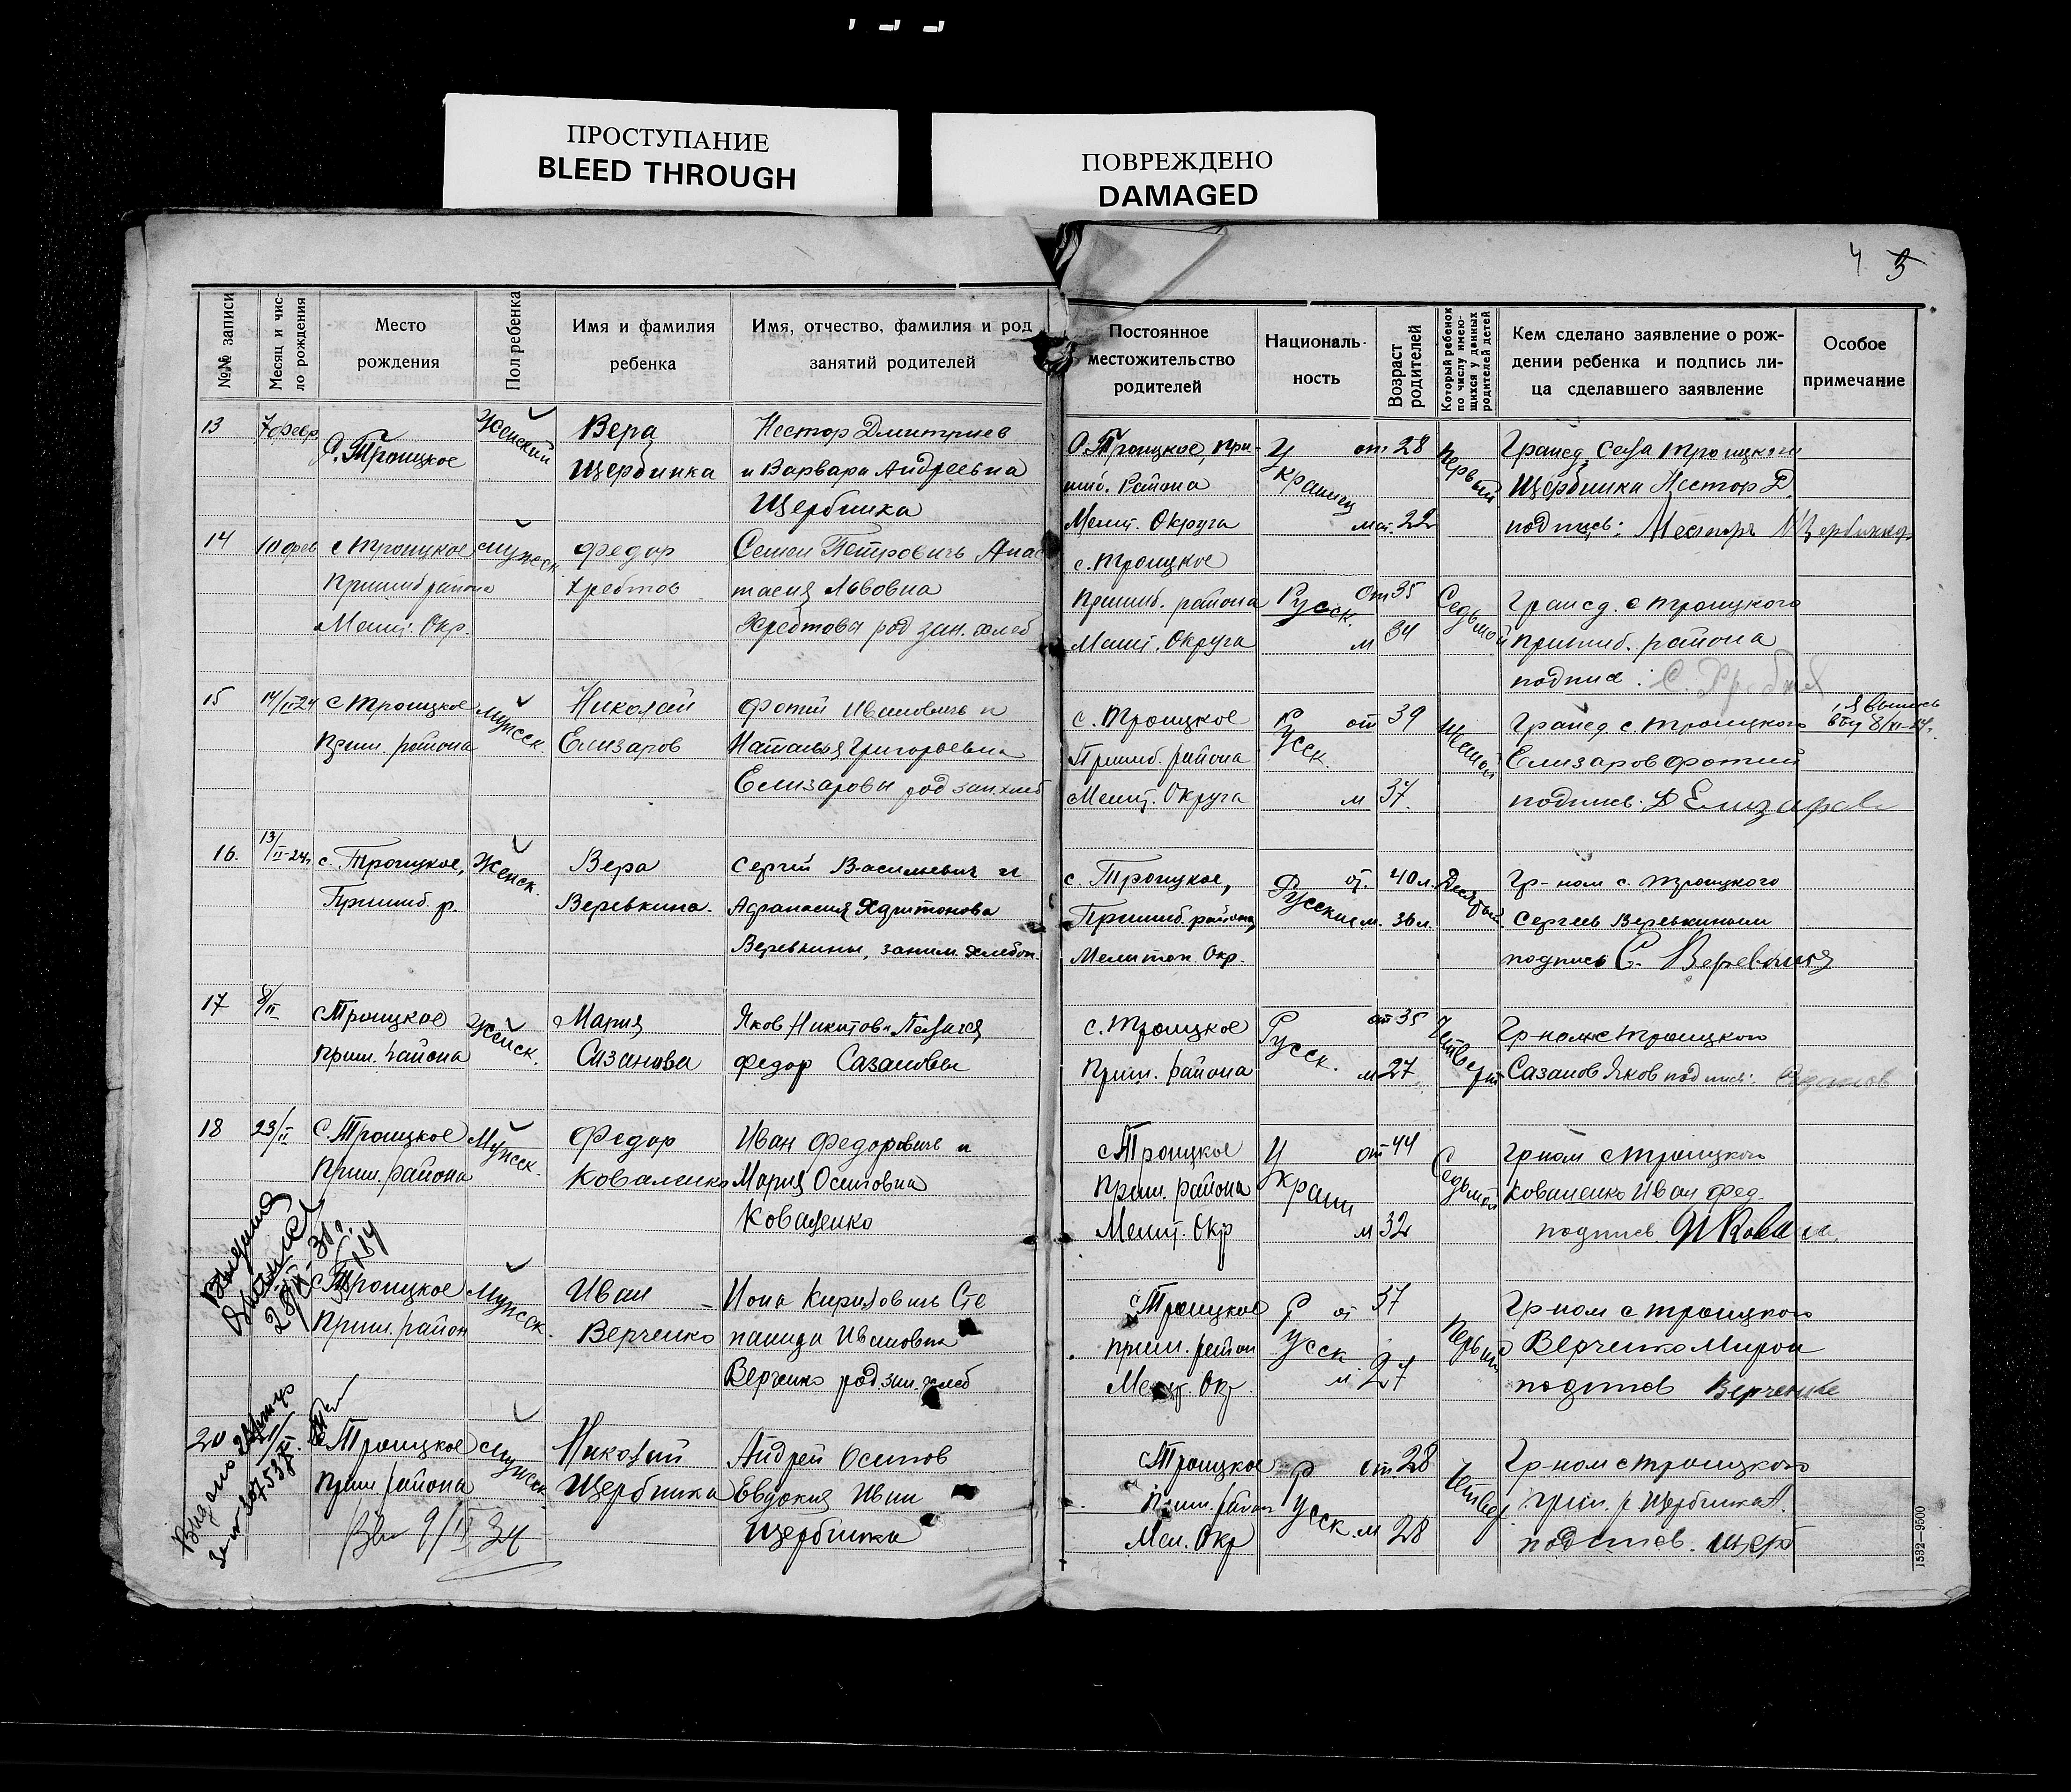 ПРОСТУПАНИЕ
BLEED THROUGH
ПОВРЕЖДЕНО
DAMAGED
4 5
№№ записи
Месяц и чис-
ло рождения
Место
рождения
Пол ребенка
Имя и фамилия
ребенка
Имя, отчество, фамилия и род
занятий родителей
Постоянное
местожительство
родителей
Националь-
ность
Возраст
родителей
Который ребенок
по числу имею-
щихся у данных
родителей детей
Кем сделано заявление о рож-
дении ребенка и подпись ли-
ца сделавшего заявление
Особое
примечание
13
7 февр
с. Троицкое
Женский
Вера
Щербинка
Нестор Дмитриев
и Варвара Андреевна
Щербинка
С. Троицкое, При-
шиб. Района
Мелит. Округа
Украинц
от 28
мат. 22
Первый
Гражд. села Троицкого
Щербинка Нестор Д.
подпись: Несторъ Щербинка
14
с Троицкое
Пришиб района
Мелит. Окр.
мужск
Федор
Хребтов
Семен Петровичь Анас
тасия Львовна
Хребтовы род зан. хлеб
с. Троицкое
Пришиб. района
Мелит. Округа
Русск.
от 35
м 34
Седьмой
Гражд. с Троицкого
Пришиб. района
подпис: С. Хребтов
15
14/II 24
с Троицкое
Приш. района
мужск.
Николай
Елизаров
Фотий Иванович и
Наталья Григорьевна
Елизаровы род зан хлеб
с. Троицкое
Пришиб. района
Мелит. Округа
Русск.
от 39
м 37.
Гражд с. Троицкого
Елизаров Фотий
подпись: Ф Елизаров
16.
13/II-24г.
с. Троицкое,
Пришиб. р.
Женск.
Вера
Веревкина.
Сергей Васильевич и
Харитонова
Веревкины, заним. хлебоп.
с. Троицкое,
Пришиб. района,
Мелитоп. Окр.
Русские
от. 40 л.
м. 36 л.
Десятый
Гр-ном с. Троицкого
Сергеем Веревкиным
подпись С. Веревкин
17
8/II
с Троицкое
приш. района
Женск.
Мария
Сазанова
Яков Никитов. Пелагея
Федор Сазановы
с. Троицкое
Приш. района
Русск.
от 35
м 27
Четверт
Гр-ном с Троицкого
Сазанов Яков подпись:
18
23/II
С. Троицкое
Приш. района
Мужск.
Федор
Коваленко
Иван Федоровичь и
Мария Осиповна
Коваленко
с Троицкое
Приш. района
Мелит. Окр
Украин
от 44
м 32
Седьмой
Гр ном с Троицкого
Коваленко Иван Фед.
подпись
Выдана
с Троицкое
Приш. район
Мужск.
Иван
Верченко
Иона Кирилович Сте
панида Ивановна
Верченко род зан. хлеб
с Троицкое
приш. район
Мелит. Окр.
Русск
от 37
м 27
Первый
Гр-ном с. Троицкого
Верченко
подпись Верченко
20
Выдано
с Троицкое
Приш района
мужск.
Николай
Щербинка
Андрей Осипов
Евдокия Иван
Щербинка
9/IV 34
с Троицкое
Приш. район
Мел. Окр
Русск.
от 28
м 28
Четвер
Гр-ном с Троицкого
приш. р Щербинка А.
подпись. Щерб
1532—9500